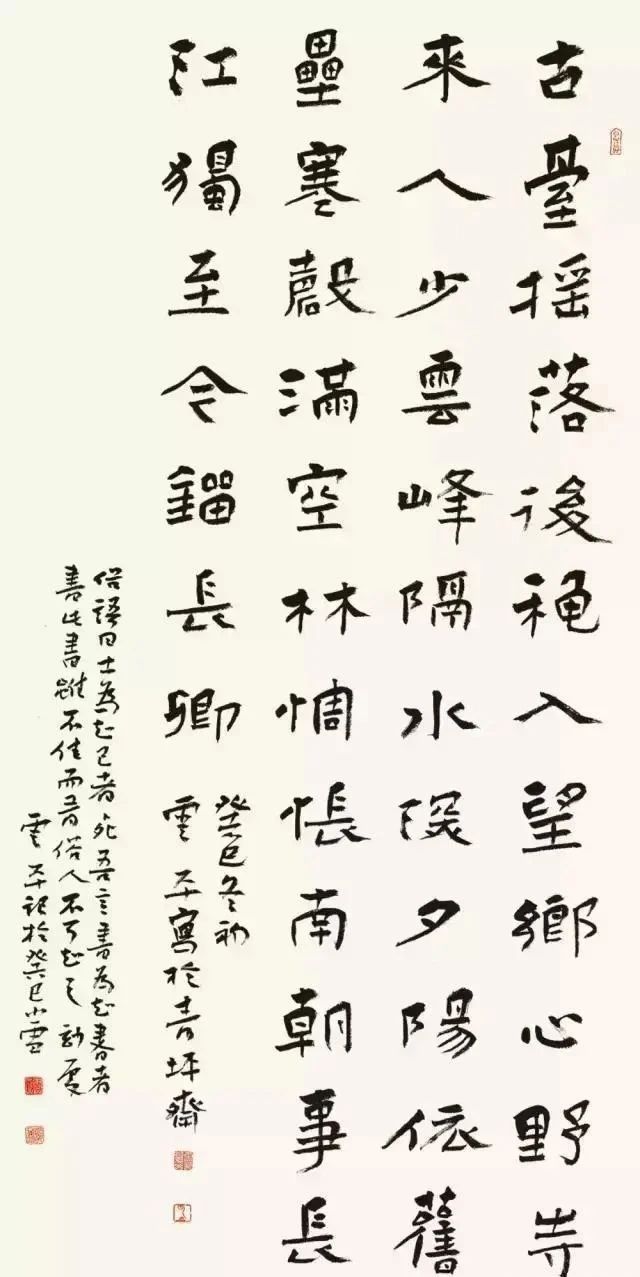 古臺摇落後穐入望鄉心野寺
來人少雲峰隔水深夕陽依舊
壘寒殸滿空林惆悵南朝事長
江獨至今鎦長卿
癸巳冬初
雲平寫於坪齋
俗語曰士為知己者死吾言書為知書者
書此書雖不佳而有俗人不可知之妙處
雲平記於癸巳小雪